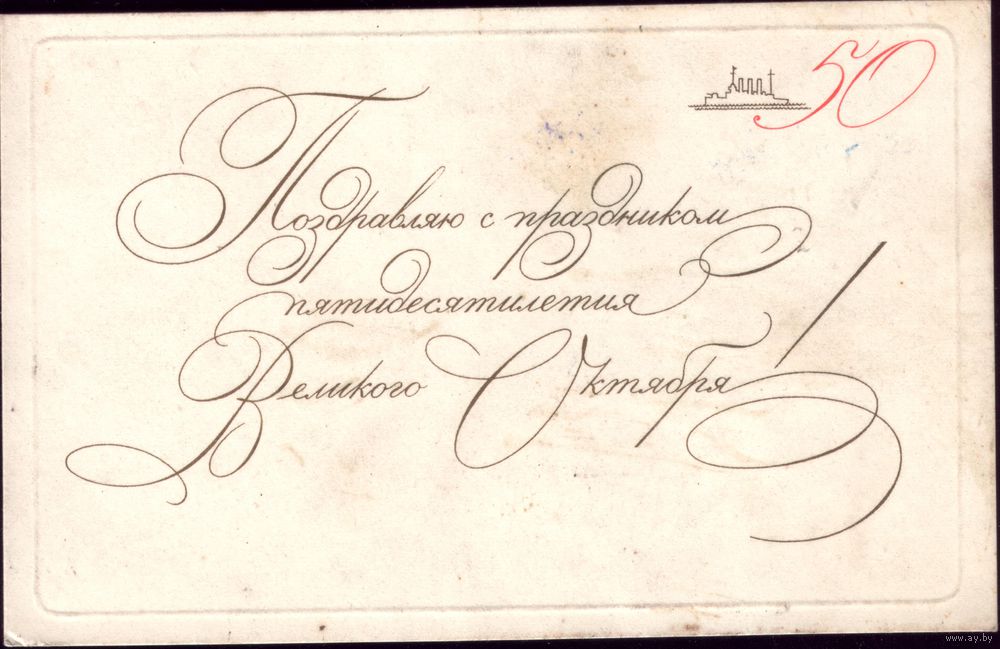 50
Поздравляю с праздником
пятидесятилетия
Великого Октября!
www.ay.by